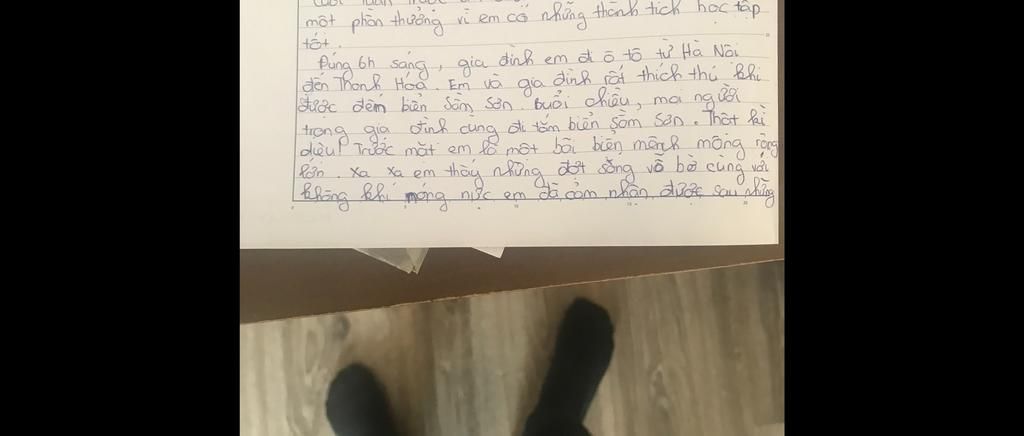 một phần thưởng vì em có những thành tích học tập
tốt.
Đúng 6h sáng, gia đình em đi ô tô từ Hà Nội
đến Thanh Hóa. Em và gia đình rất thích thú khi
được đến biển Sầm Sơn. Buổi chiều, mọi người
trong gia đình cùng đi tắm biển Sầm Sơn. Thật kì
diệu! Trước mắt em là một bãi biển mênh mông rộng
lớn. Xa xa em thấy những đợt sóng vỗ bờ cùng với
không khí nóng nực em đã cảm nhận được sau những